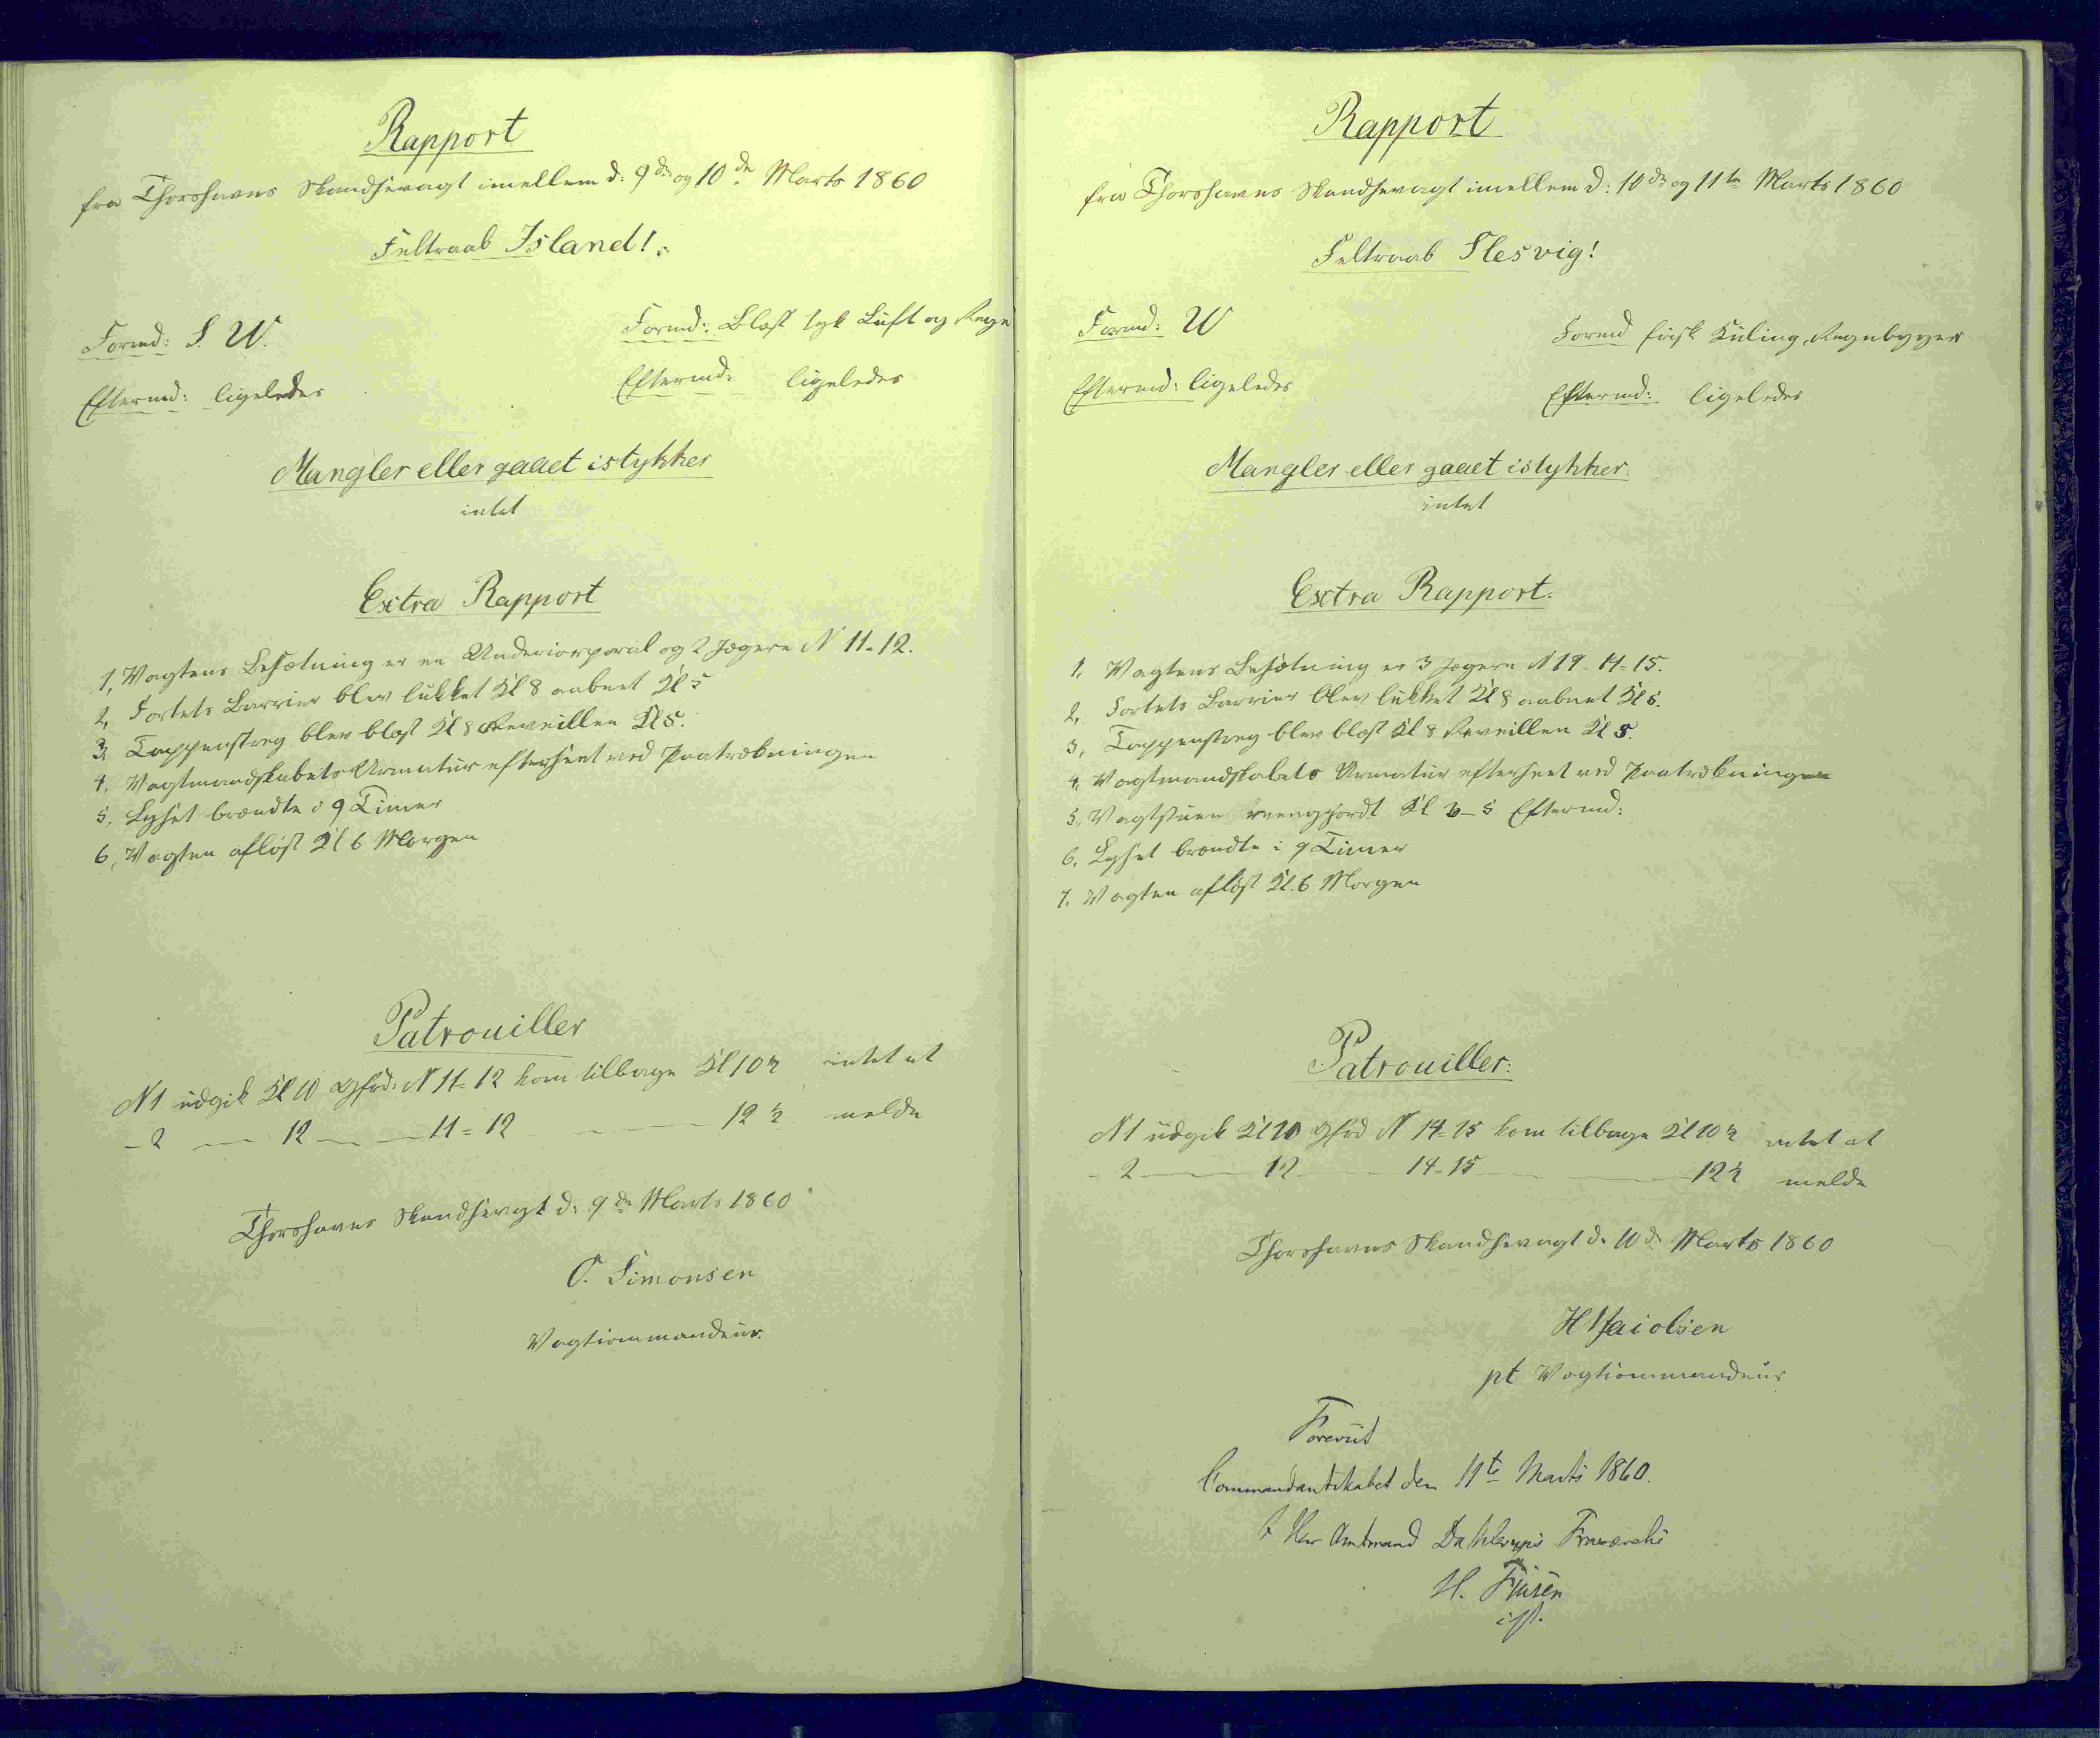 Rapport
fra Thorshavns Skandsevagt imellem d: 9de og 10de Marts 1860
Feltraab Island!
Formd: S. W.
Formd: Blæst tyk Luft og Regn
Eftermd: ligeledes
Eftermd: ligeledes
Mangler eller gaaet istykker
intet
Extra Rapport
1, Vagtens Besætning er en Undercorporal og 2 Jægere N 11-12.
2, Fortets Barrier blev lukket Kl 8 aabnet Kl 5
3, Tappenstreg blev blæst Kl 8 Reveillen Kl 5.
4, Vagtmandskabets Armatur efterseet ved Paatrækningen
5, Lyset brændte i 9 Timer
6, Vagten afløst Kl 6 Morgen
Patrouiller
N 1 udgik Kl 10 N 11-12 kom tilbage Kl 10½ intet at
- 2 — 12 — 11-12 — 12½ melde
Thorshavns Skandsevagt d: 9de Marts 1860
O. Simonsen
Vagtcommandeur.
Rapport
fra Thorshavns Skandsevagt imellem d: 10de og 11te Marts 1860
Feltraab Slesvig!
Formd: W
Formd frisk Kuling, Regnbyger
Eftermd: ligeledes
Eftermd: ligeledes
Mangler eller gaaet istykker.
intet
Extra Rapport.
1, Vagtens Besætning er 3 Jægere N 19-14-15.
2, Fortets Barrier blev lukket Kl 8 aabnet Kl 5.
3, Tappenstreg blev blæst Kl 8 Reveillen Kl 5.
4, Vagtmandskabets Armatur efterseet ved Paatrækningen
5, Vagtstuen reengjordt Kl 3-5 Eftermd:
6, Lyset brændte i 9 Timer
7, Vagten afløst Kl. 6 Morgen
Patrouiller:
N 1 udgik Kl 10 N 14-15 kom tilbage Kl 10½ intet at
- 2 — 12 — 14-15 — 12½ melde
Thorshavns Skandsevagt d: 10de Marts 1860
H Jacobsen
pt Vagtcommandeur
Foreviist
Commandantskabet den 11te Marts 1860.
I Herr Amtmand Dahlerups Fraværelse
H. Finsen
cst.